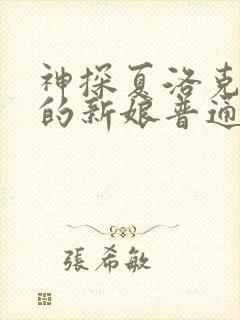 神探夏洛克
的新娘普通
張希敏